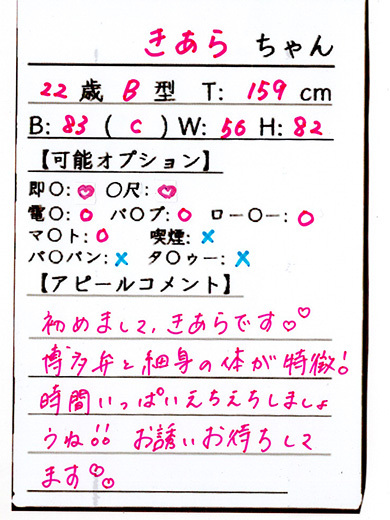 きあら ちゃん
22歳 B型 T: 159cm
B: 83 (C) W: 56 H: 82
【可能オプション】
即〇: ♡ 〇尺: ♡
電〇: ○ バ〇ブ: ○ ロー〇ー: ○
マ〇ト: ○ 喫煙: ×
パ〇パン: × タ〇ゥー: ×
【アピールコメント】
初めまして、きあらです♡♡
博多弁と細身の体が特徴!
時間いっぱいえちえちしましょ
うね!! お誘いお待ちして
ます♡♡